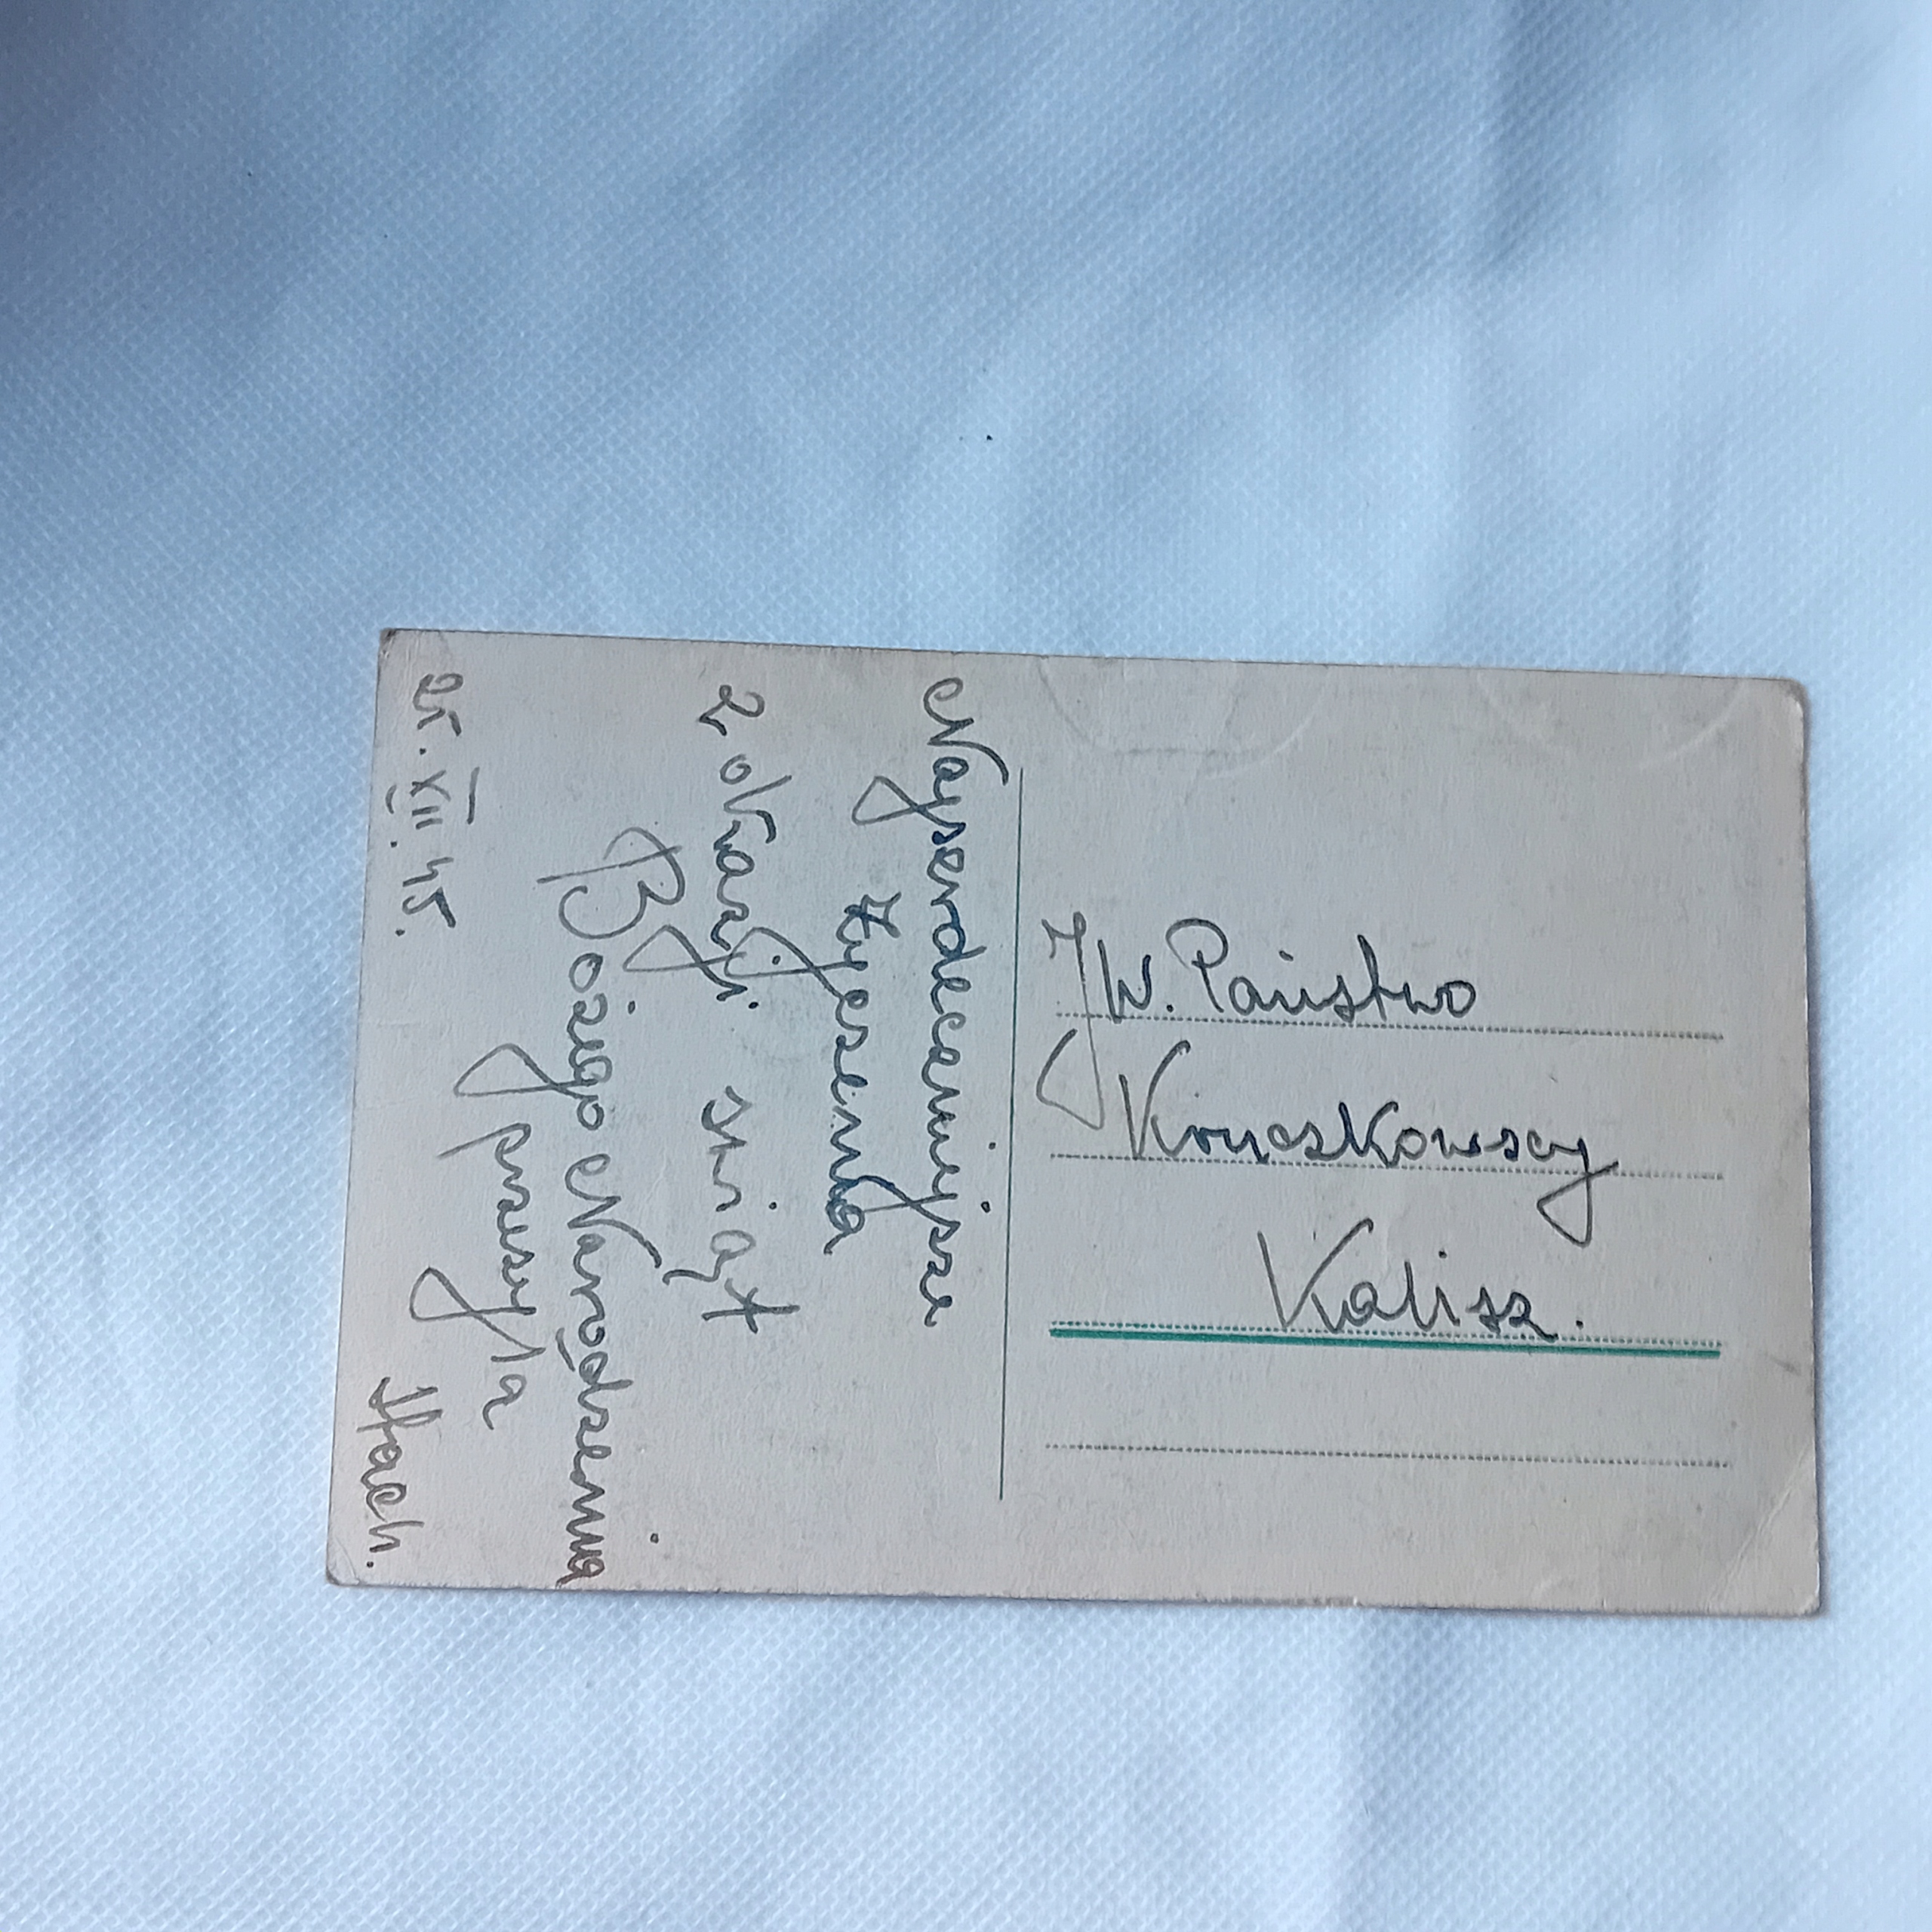 Najserdeczniejsze
życzenia
z okazyji świąt
Bożego Narodzenia
przesyła
Stach.
25.XII.45.
JW. Państwo
Kruczkowscy
Kalisz.